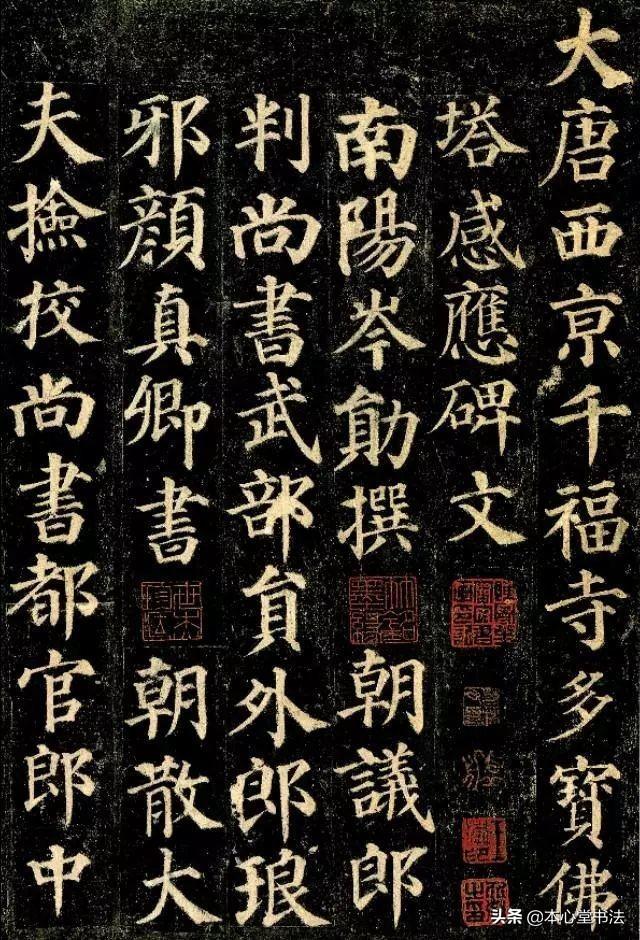 大唐西亰千福寺多寶佛
塔感應碑文
南陽岑勛撰 朝議郎
判尚書武部員外郎琅
邪顏真卿書 朝散大
夫撿校尚書都官郎中
头条 @本心堂书法